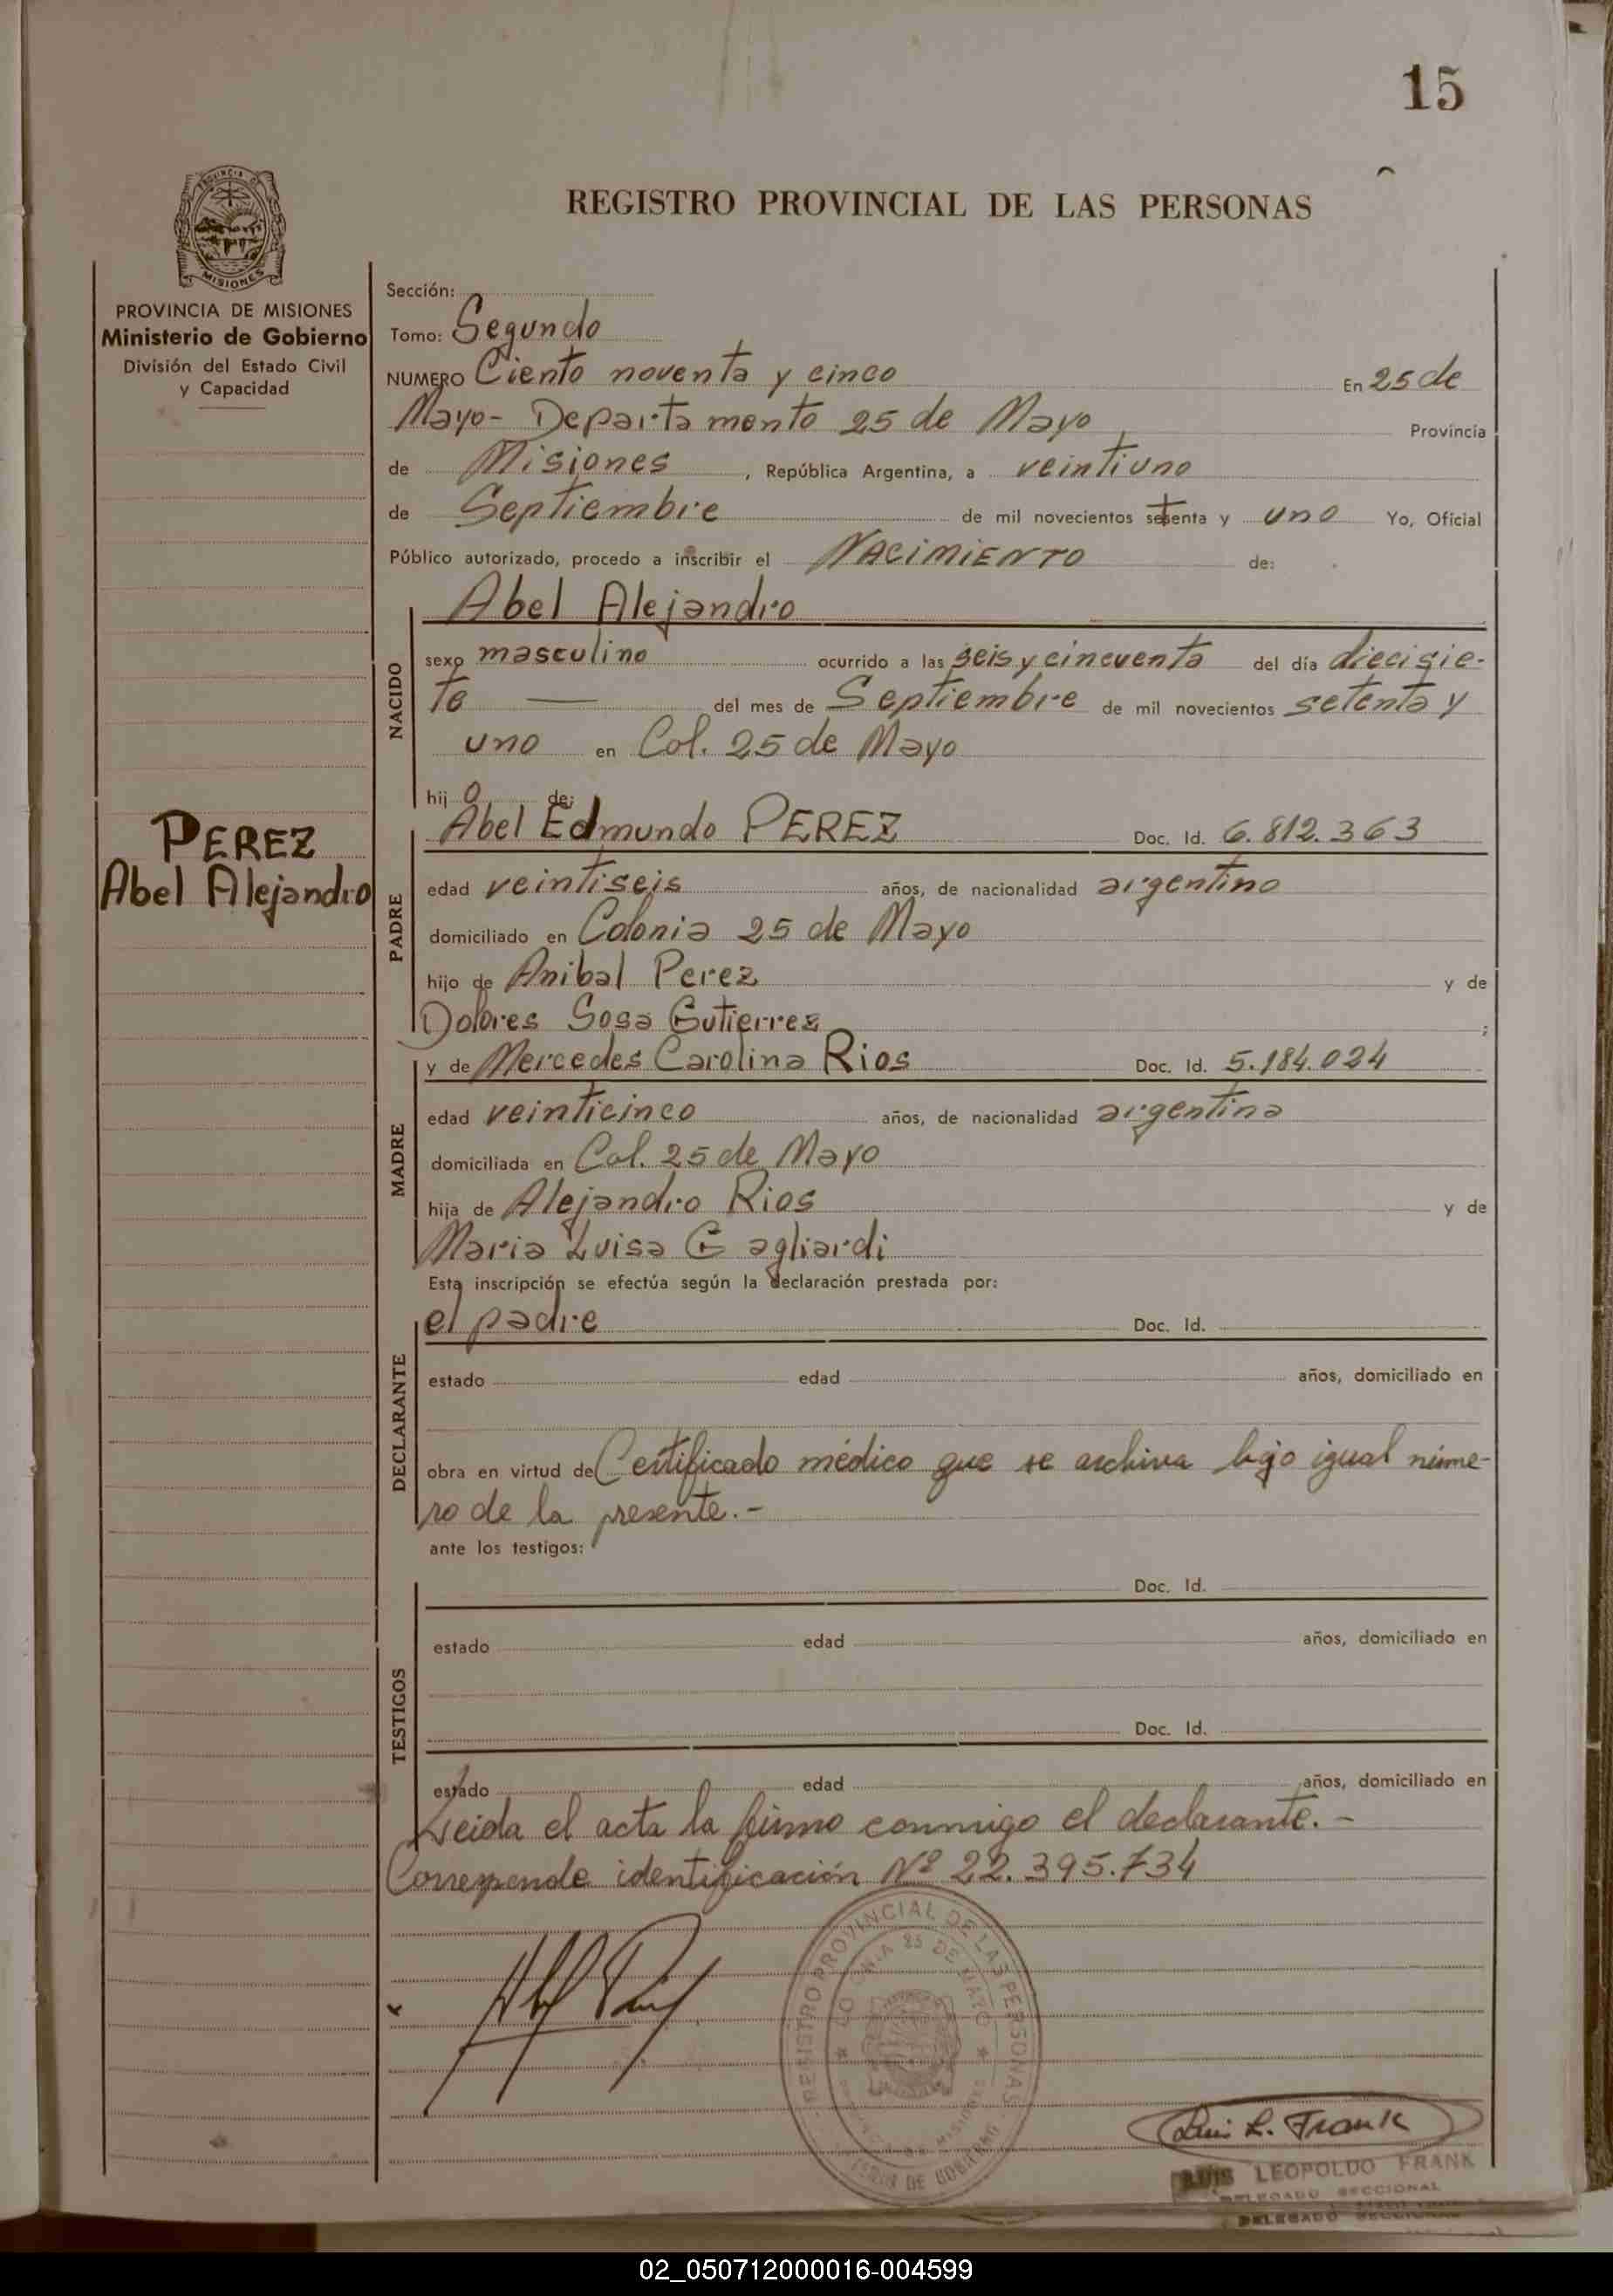 15
PROVINCIA DE
MISIONES
REGISTRO PROVINCIAL DE LAS PERSONAS
PROVINCIA DE MISIONES
Ministerio de Gobierno
División del Estado Civil
y Capacidad
PEREZ
Abel Alejandro
Sección:
Tomo: Segundo
NUMERO Ciento noventa y cinco En 25 de
Mayo- Departamento 25 de Mayo Provincia
de Misiones, República Argentina, a veintiuno
de Septiembre de mil novecientos setenta y uno Yo, Oficial
Público autorizado, procedo a inscribir el NACIMIENTO de:
Abel Alejandro
NACIDO
sexo masculino ocurrido a las seis y cincuenta del día diecisie-
te — del mes de Septiembre de mil novecientos setenta y
uno en Col. 25 de Mayo
hijo de:
Abel Edmundo PEREZ Doc. Id. 6.812.363
PADRE
edad veintiseis años, de nacionalidad argentino
domiciliado en Colonia 25 de Mayo
hijo de Anibal Perez y de
Dolores Sosa Gutierrez ;
y de Mercedes Carolina Rios Doc. Id. 5.184.024
MADRE
edad veinticinco años, de nacionalidad argentina
domiciliada en Col. 25 de Mayo
hija de Alejandro Rios y de
Maria Luisa Gagliardi
Esta inscripción se efectúa según la declaración prestada por:
el padre Doc. Id.
DECLARANTE
estado edad años, domiciliado en
obra en virtud de Certificado médico que se archiva bajo igual núme-
ro de la presente.-
ante los testigos:
Doc. Id.
TESTIGOS
estado edad años, domiciliado en
Doc. Id.
estado edad años, domiciliado en
Leida el acta la firmo conmigo el declarante.-
Corresponde identificación Nº 22.395.734
REGISTRO PROVINCIAL DE LAS PERSONAS
COLONIA 25 DE MAYO
MISIONES
DE GOBIERNO
Luis L. Frank
LUIS LEOPOLDO FRANK
DELEGADO SECCIONAL
DELEGADO SECCIONAL
02_050712000016-004599